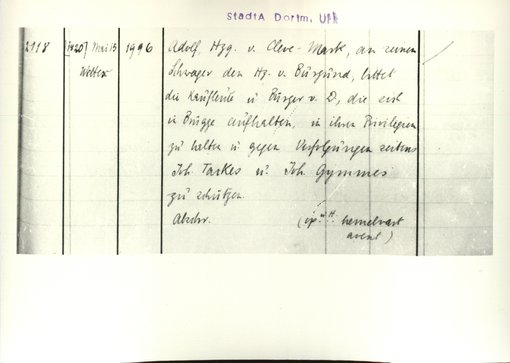 StadtA Dortm. Urk
2118 [14]20 Mai 13 1996 Adolf, Hzg. v. Cleve-Mark, an seinen
Wetter Schwager den Hz. v. Burgund, bittet
die Kaufleute u. Bürger v. D., die sich
in Brügge aufhalten, in ihren Privilegien
zu halten u. gegen Verfolgungen seitens
Joh. Tackes u. Joh. Gymmes
zu schützen.
Abschr. (op
hemelvart
avent)